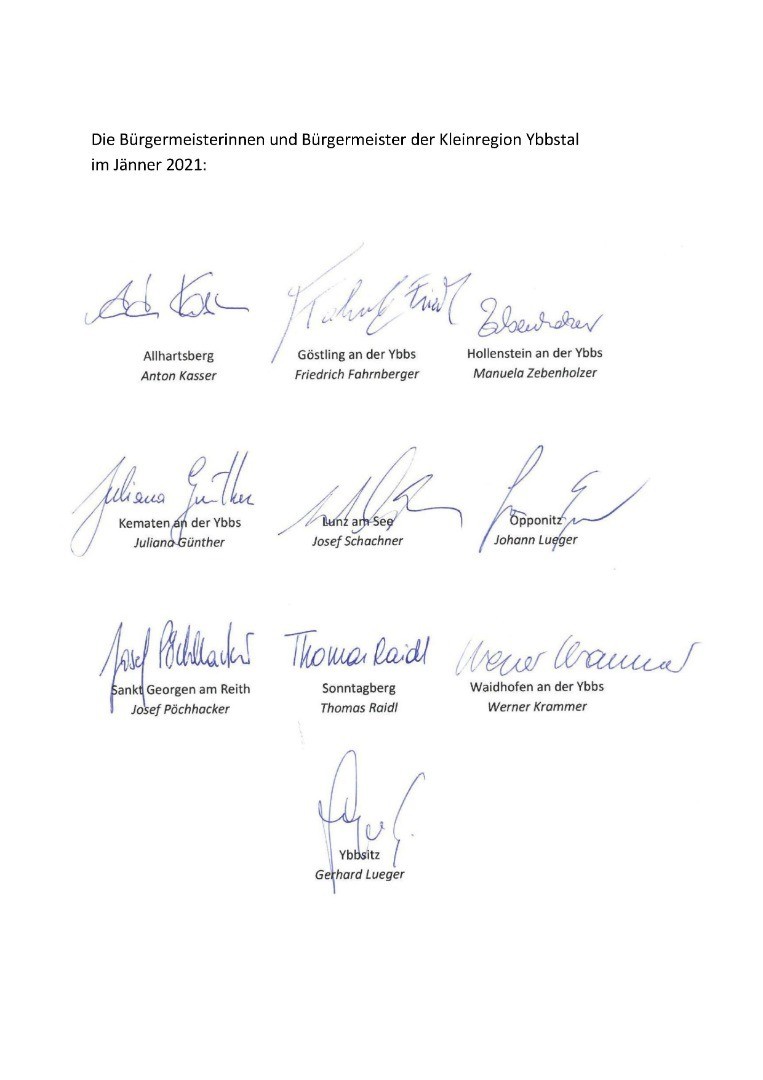 Die Bürgermeisterinnen und Bürgermeister der Kleinregion Ybbstal
im Jänner 2021:
Allhartsberg
Anton Kasser
Göstling an der Ybbs
Friedrich Fahrnberger
Hollenstein an der Ybbs
Manuela Zebenholzer
Juliana Günther
Kematen an der Ybbs
Juliana Günther
Lunz am See
Josef Schachner
Opponitz
Johann Lueger
Josef Pöchhacker
Sankt Georgen am Reith
Josef Pöchhacker
Thomas Raidl
Sonntagberg
Thomas Raidl
Werner Krammer
Waidhofen an der Ybbs
Werner Krammer
Ybbsitz
Gerhard Lueger